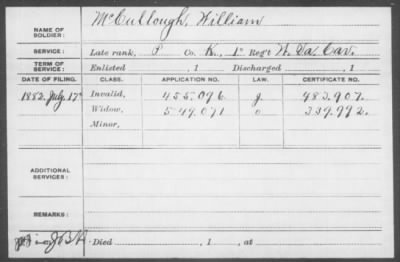 NAME OF SOLDIER: McCullough, William
SERVICE: Late rank, P Co. K, 1st Reg't W. Va. Cav.
TERM OF SERVICE: Enlisted , 1 Discharged , 1
DATE OF FILING. CLASS. APPLICATION NO. LAW. CERTIFICATE NO.
1882, July 17 Invalid, 455.096 g 482.907.
Widow, 549.071 o 339.992.
Minor,
ADDITIONAL SERVICES:
REMARKS:
Died , 1 , at